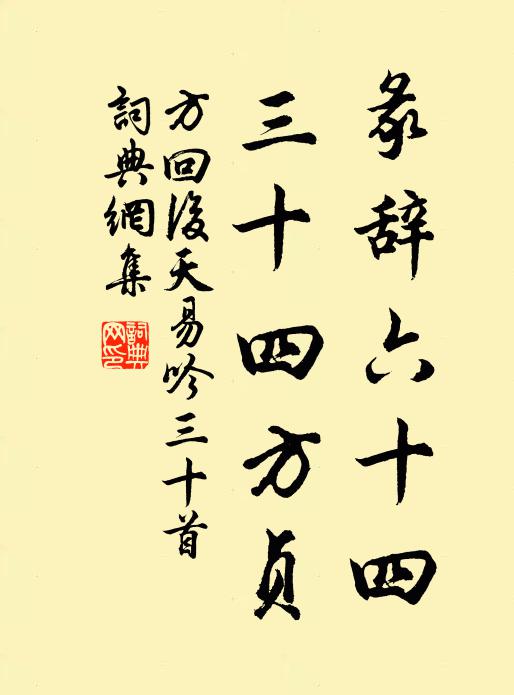 彖辞六十四
三十四方贞
方回後天易吟三十首
詞典網集
詞典网印